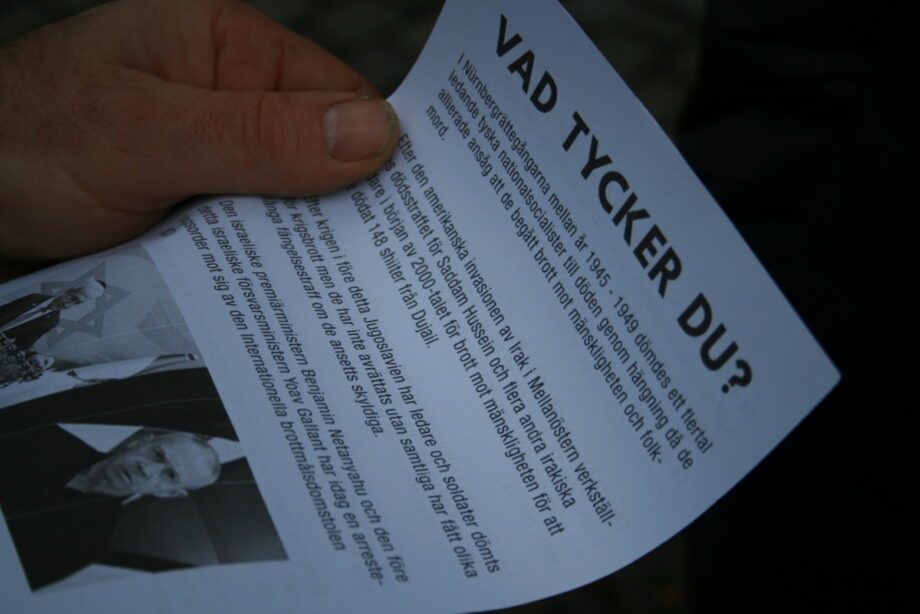 VAD TYCKER DU?
I Nürnbergrättegångarna mellan år 1945 - 1949 dömdes ett flertal
ledande tyska nationalsocialister till döden genom hängning då de
allierade ansåg att de begått brott mot mänskligheten och folk-
mord.
Efter den amerikanska invasionen av Irak i Mellanöstern verkställ-
s dödsstraffet för Saddam Hussein och flera andra irakiska
are i början av 2000-talet för brott mot mänskligheten för att
dödat 148 shiiter från Dujail.
ter krigen i före detta Jugoslavien har ledare och soldater dömts
r krigsbrott men de har inte avrättats utan samtliga har fått olika
ånga fängelsestraff om de ansetts skyldiga.
Den israeliske premiärministern Benjamin Netanyahu och den före
detta israeliske försvarsministern Yoav Gallant har idag en arreste-
ngsorder mot sig av den Internationella brottmålsdomstolen